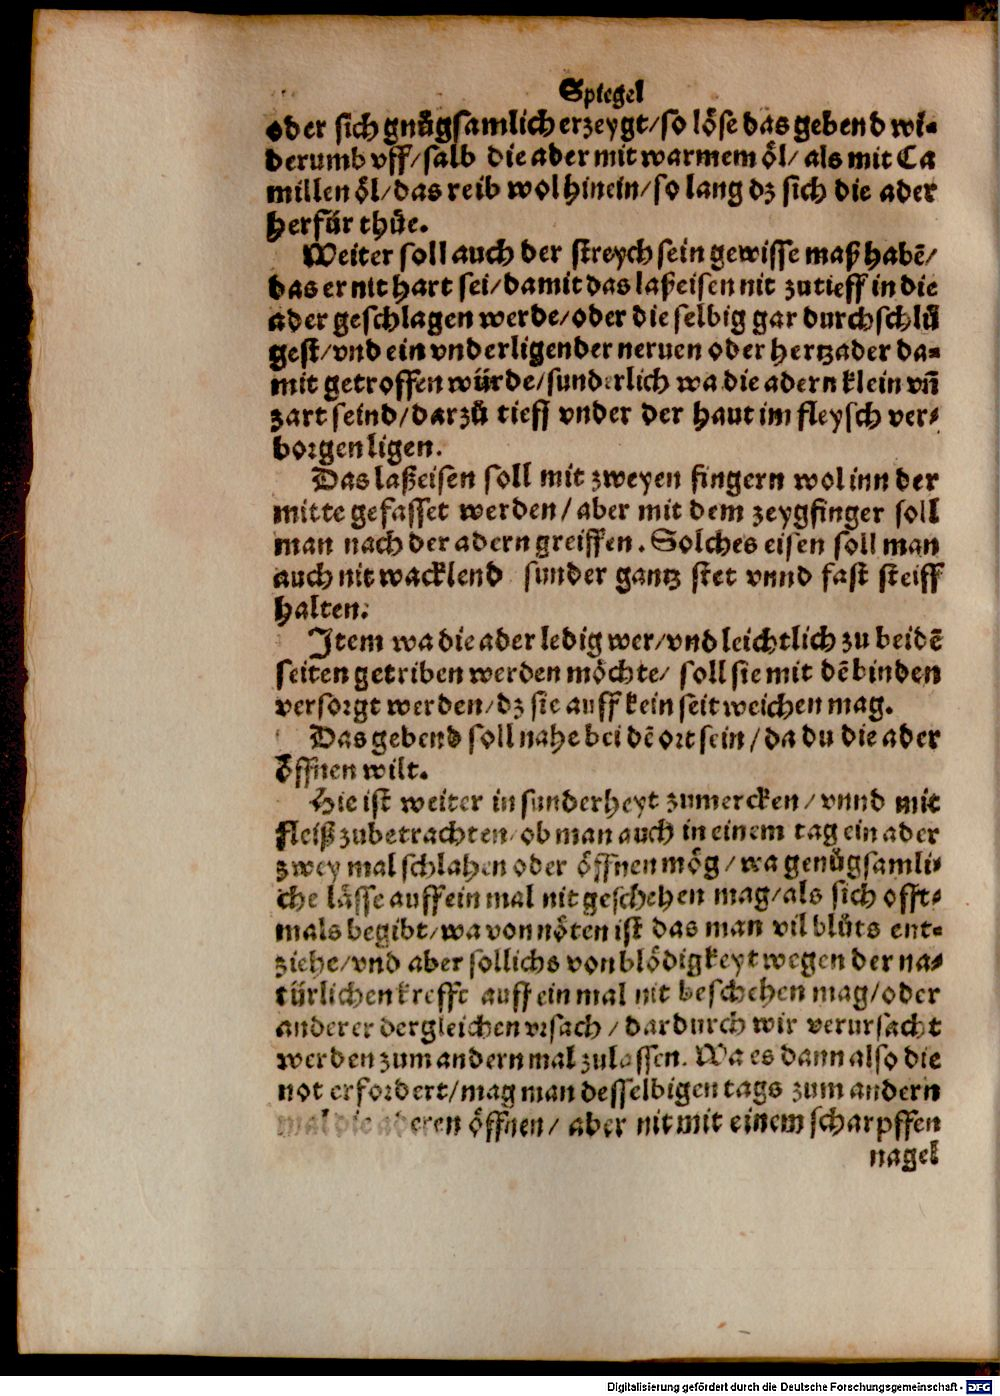 Spiegel
oder sich gnůgsamlich erzeygt/so löse das gebend wi-
derumb vff/salb die ader mit warmem öl/ als mit Ca
millen öl/das reib wol hinein/so lang dz sich die ader
herfür thůe.
Weiter soll auch der streych sein gewisse maß habē/
das er nit hart sei/damit das laßeisen nit zutieff in die
ader geschlagen werde/oder die selbig gar durchschlů
gest/vnd ein vnderligender neruen oder hertzader da-
mit getroffen würde/sunderlich wa die adern klein vñ
zart seind/darzů tieff vnder der haut im fleysch ver-
borgen ligen.
Das laßeisen soll mit zweyen fingern wol inn der
mitte gefasset werden/aber mit dem zeygfinger soll
man nach der adern greiffen. Solches eisen soll man
auch nit wacklend sunder gantz stet vnnd fast steiff
halten.
Item wa die ader ledig wer/vnd leichtlich zu beidē
seiten getriben werden möchte/ soll sie mit dē binden
versorgt werden/dz sie auff kein seit weichen mag.
Das gebend soll nahe bei dē ort sein/da du die ader
öffnen wilt.
Hie ist weiter in sunderheyt zumercken/vnnd mit
fleiß zubetrachten/ob man auch in einem tag ein ader
zwey mal schlahen oder öffnen mög/wa genůgsamli-
che lässe auff ein mal nit geschehen mag/als sich offt-
mals begibt/wa von nöten ist das man vil blůts ent-
ziehe/vnd aber sollichs von blödigkeyt wegen der na-
türlichen krefft auff ein mal nit beschehen mag/oder
anderer dergleichen vrsach/dardurch wir verursacht
werden zum andern mal zulassen. Wa es dann also die
not erfordert/mag man desselbigen tags zum andern
mal die aderen öffnen/ aber nit mit einem scharpffen
nagel
Digitalisierung gefördert durch die Deutsche Forschungsgemeinschaft - DFG